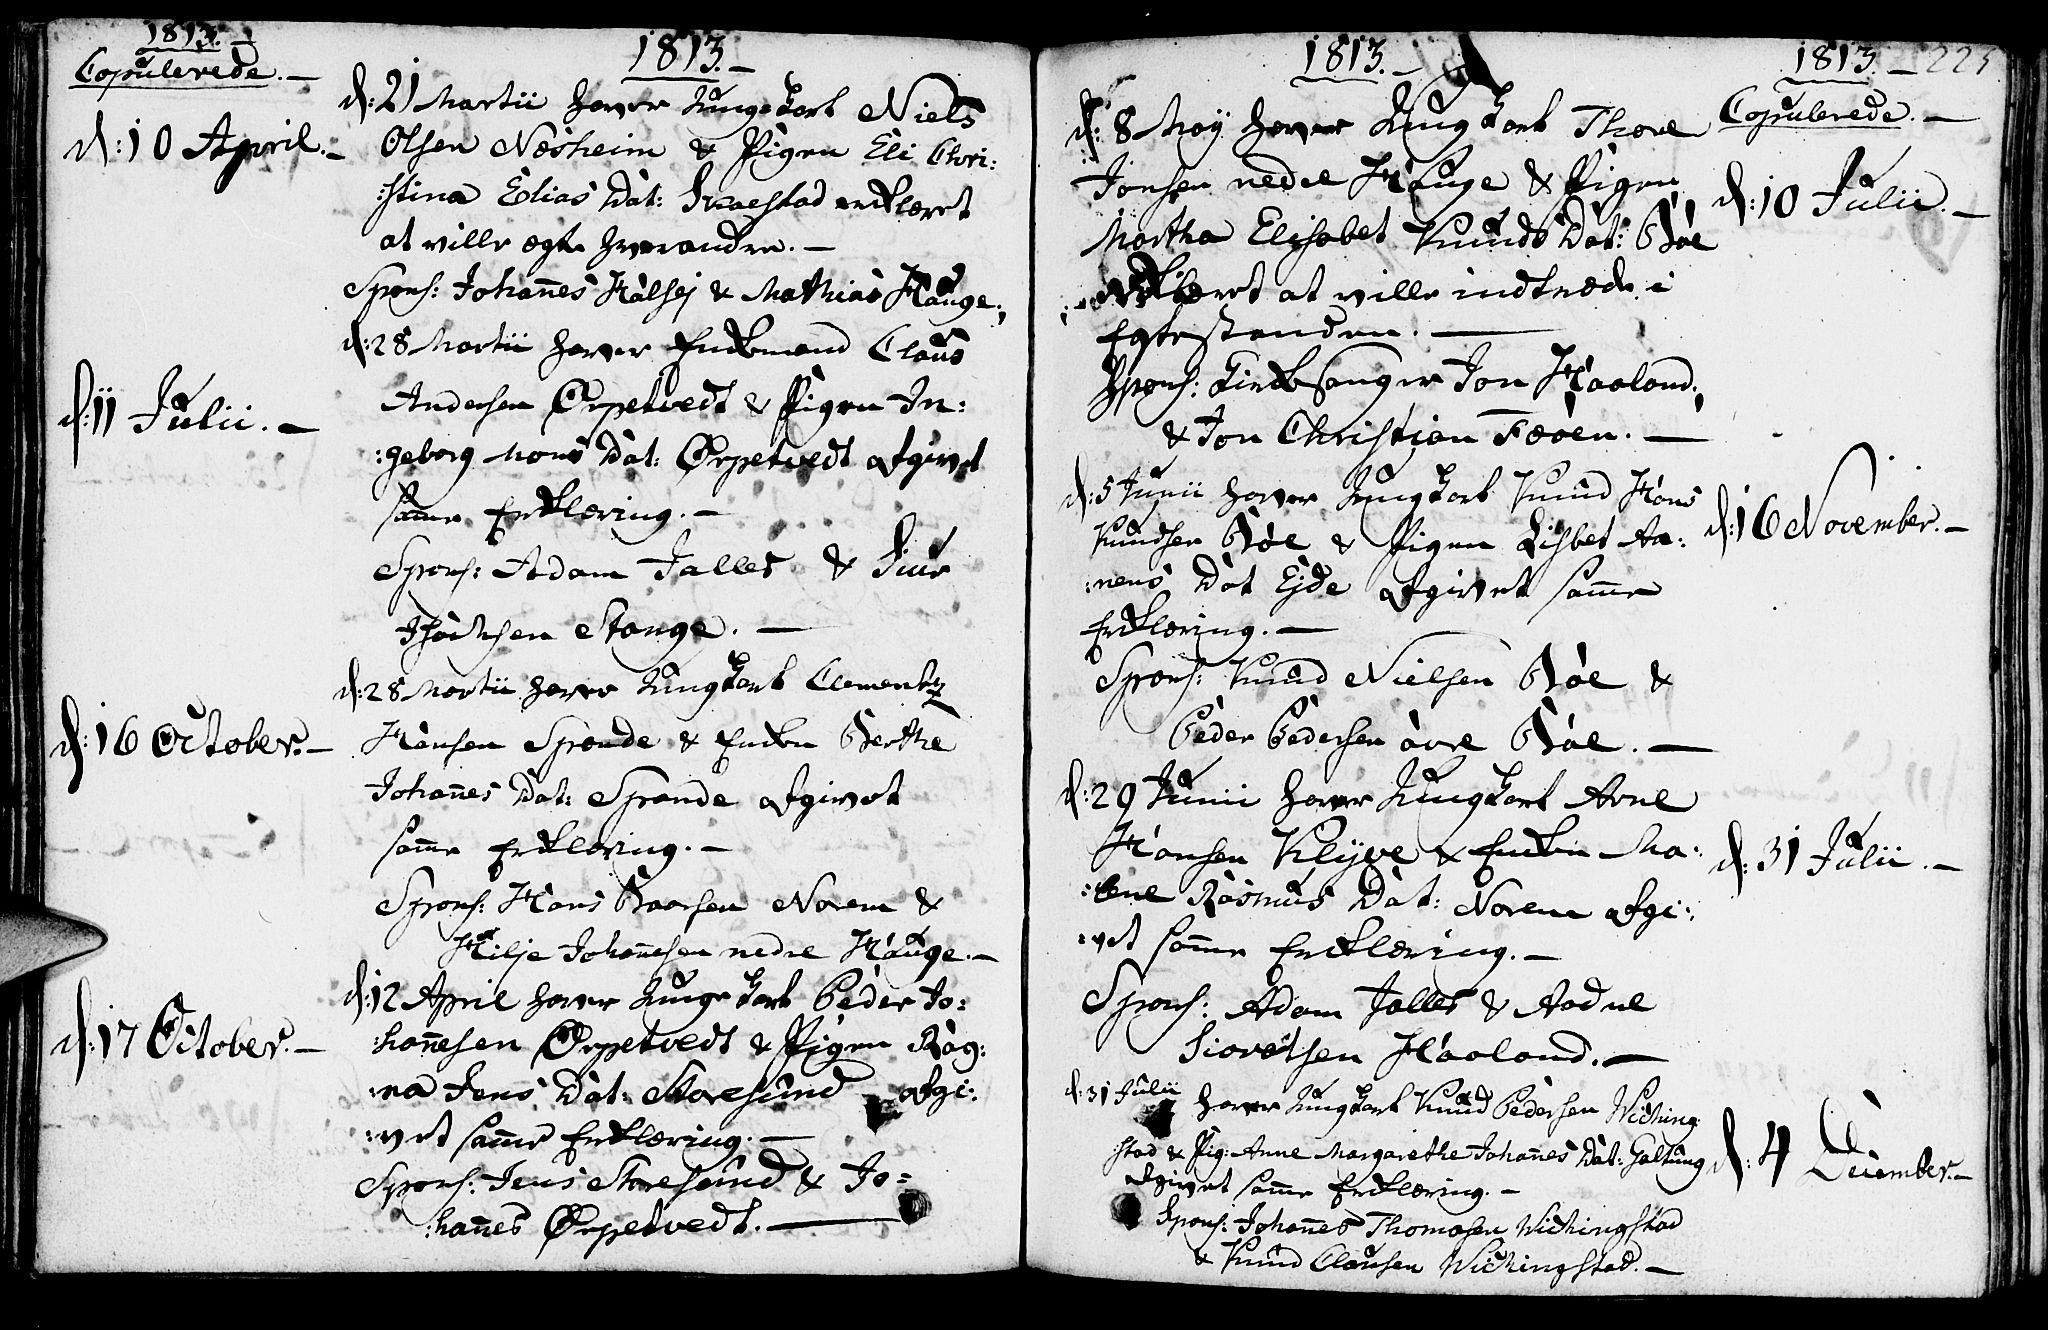 1813.
Copulerede. —
d: 10 April. —
d: 11 Julii. —
d: 16 October. —
d: 17 October. —
1813. —
d: 21 Martii haver Ungekarl Niels
Olsen Næsheim & Pigen Eli Chri:
:stina Elias Dat: erklæret
at ville ægte hverandre. —
Spons: Johannes Kalsej & Mathias Hauge.
d: 28 Martii haver Enkemand Claus
Andersen Ørpetvedt & Pigen In:
:geborg Mons Dat: Ørpetvedt afgivet
samme Erklæring. —
Spons: Adam Jalles & Siur
Stange. —
d: 28 Martii haver Ungkarl Clement
Hansen Spande & Enken Berthe
Johannes Dat: Spande afgivet
samme Erklæring. —
Spons: Hans Baarsen Norem &
Kilje Johannesen nedre Hauge. —
d: 12 April haver Unge Karl Peder Jo:
:hannesen Ørpetvedt & Pigen Rag:
:na Jens Dat: Storesund afgi:
:vet samme Erklæring. —
Spons: Jens Storesund & Jo:
:hannes Ørpetvedt. —
1813. —
d: 8 May haver Ungkarl Thore
Jonsen nedre Hauge & Pigen
Martha Elisabet Knuds Dat: Bøe
erklæret at ville indtræde i
Egtestanden. —
Spons: Kirkesanger Jon Haaland
& Jon Christian Fæøen. —
d: 5 Junii haver Ungkarl Knud Hans
Knudsen Bøe & Pigen Lisbet Aa:
:nens Dat Ejde afgivet samme
Erklæring. —
Spons: Knud Nielsen Bøe &
Peder Pedersen øvre Bøe. —
d: 29 Junii haver Ungkarl Arne
Hansen Klyve & Enken Ma:
:lene Rasmus Dat: Norem afgi:
:vet samme Erklæring. —
Spons: Adam Jalles & Aadne
Siovatsen Haaland. —
d: 31 Julii haver Ungkarl Knud Pedersen Wiching
stad & Pig: Anne Margarethe Johannes Dat: Galtung
afgivet samme Erklæring. —
Spons: Johannes Thomasen Wichingstad
& Knud Clausen Wichingstad. —
1813 — 225
Copulerede. —
d: 10 Julii. —
d: 16 November. —
d: 31 Julii. —
d: 4 December. —